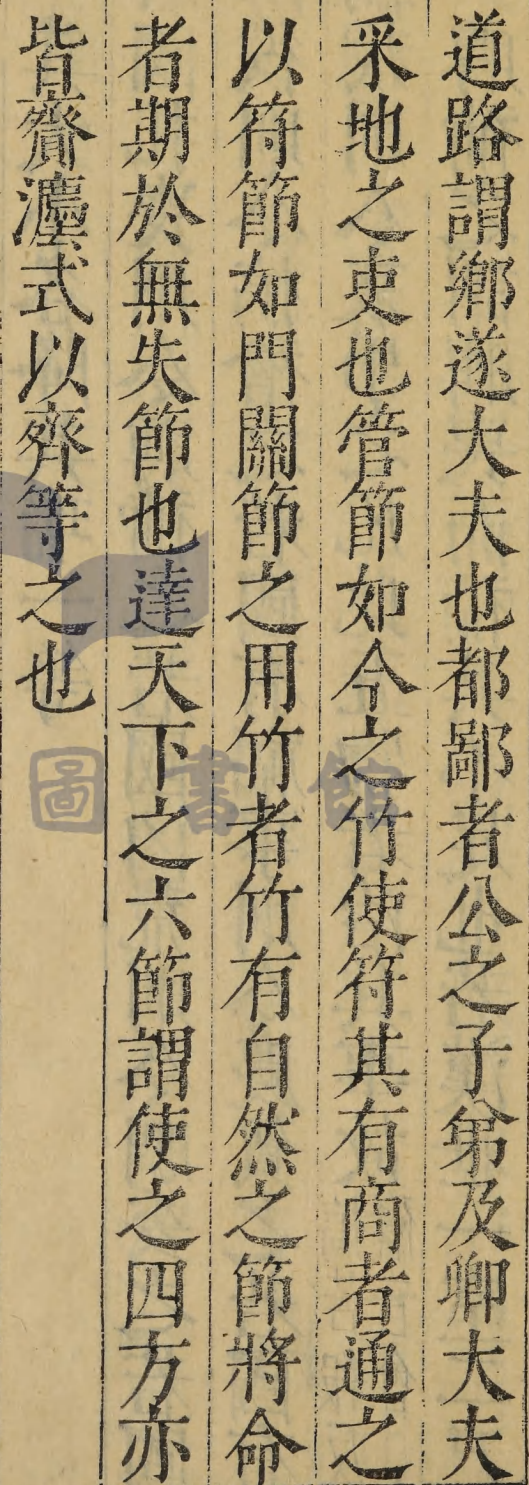 道路謂鄉遂大夫也都鄙者公之子弟及卿大夫
采地之吏也管節如今之竹使符其有商者通之
以符節如門關節之用竹者竹有自然之節將命
者期於無失節也達天下之六節謂使之四方亦
皆齎灋式以齊等之也
圖書館